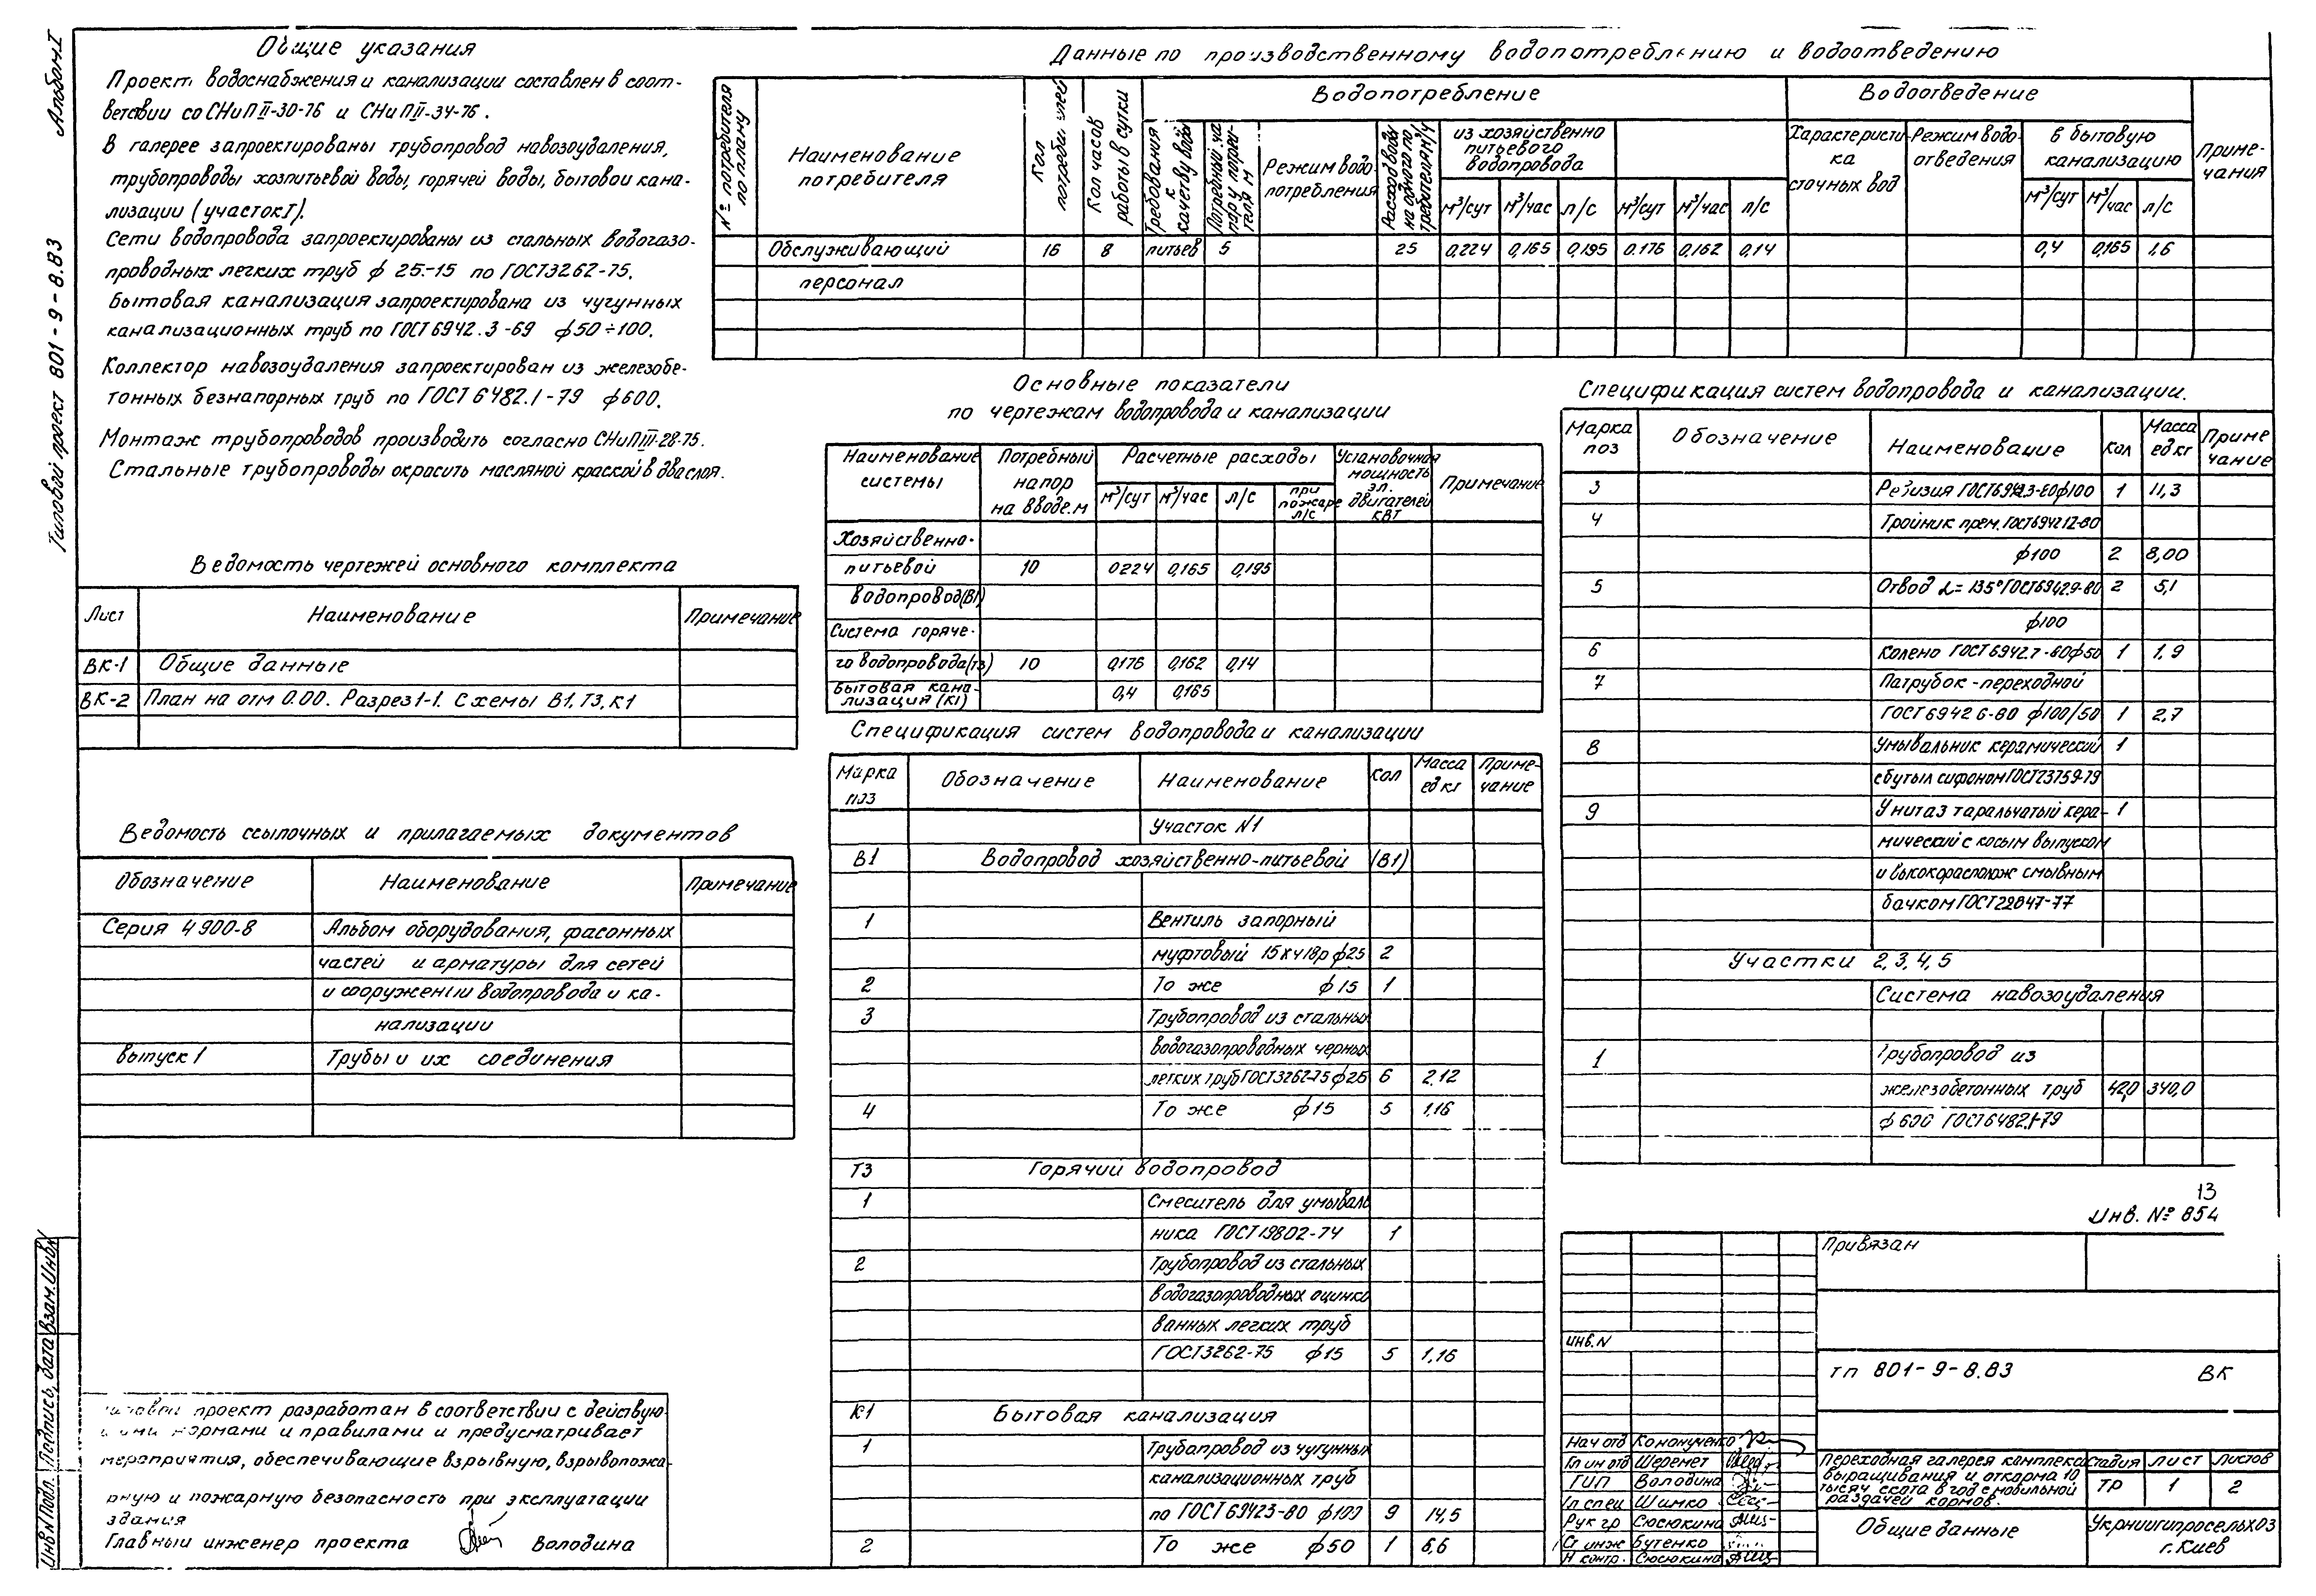 Альбом I
Типовой проект 801-9-8.83
Общие указания
Проект водоснабжения и канализации составлен в соот-
ветсвии со СНиП II-30-76 и СНиП II-34-76.
В галерее запроектированы трубопровод навозоудаления,
трубопроводы хозпитьевой воды, горячей воды, бытовой кана-
лизации (участок I).
Сети водопровода запроектированы из стальных водогазо-
проводных легких труб ф 25-15 по ГОСТ3262-75.
Бытовая канализация запроектирована из чугунных
канализационных труб по ГОСТ 6942.3-69 ф50÷100.
Коллектор навозоудаления запроектирован из железобе-
тонных безнапорных труб по ГОСТ 6482.1-79 ф600.
Монтаж трубопроводов производить согласно СНиП III-28-75.
Стальные трубопроводы окрасить масляной краской в два слоя.
Ведомость чертежей основного комплекта
Лист Наименование Примечание
ВК-1 Общие данные
ВК-2 План на отм 0.00. Разрез 1-1. Схемы В1, Т3, К1
Ведомость ссылочных и прилагаемых документов
Обозначение Наименование Примечание
Серия 4 900-8 Альбом оборудования, фасонных
частей и арматуры для сетей
и сооружении водопровода и ка-
нализации
выпуск 1 Трубы и их соединения
проект разработан в соответствии с действую-
нормами и правилами и предусматривает
мероприятия, обеспечивающие взрывную, взрывопожа-
рную и пожарную безопасность при эксплуатации
здания
Главный инженер проекта Володина
Инв N Подл. Подпись, дата Взам. Инв N
Данные по производственному водопотреблению и водоотведению
№ потребителя по плану Наименование потребителя Кол потребителей Кол часов работы в сутки Водопотребление Водоотведение Приме-
чания
Требования к качеству воды Потребный напор у потребителя м Режим водо-
потребления Расход воды на одного потребителя л/ч из хозяйственно
питьевого
водопровода Характеристи
ка
сточных вод Режим водо-
отведения в бытовую
канализацию
м³/сут м³/час л/с м³/сут м³/час л/с м³/сут м³/час л/с
Обслуживающий 16 8 питьев 5 25 0,224 0,165 0,195 0.176 0,162 0,14 0,4 0,165 1.6
персонал
Основные показатели
по чертежам водопровода и канализации
Наименование
системы Потребный
напор
на вводе.м Расчетные расходы Установочная
мощность
эл.
двигателей
квт Примечание
м³/сут м³/час л/с при
пожаре
л/с
Хозяйственно-
питьевой 10 0224 0,165 0,195
водопровод(В1)
Система горяче-
го водопровода(Т3) 10 0,176 0,162 0,14
Бытовая кана-
лизация (К1) 0,4 0,165
Спецификация систем водопровода и канализации
Марка
поз Обозначение Наименование Кол Масса
ед кг Приме-
чание
Участок N1
В1 Водопровод хозяйственно-питьевой (В1)
1 Вентиль запорный
муфтовый 15кч18р ф25 2
2 То же ф15 1
3 Трубопровод из стальных
водогазопроводных черных
легких труб ГОСТ3262-75 ф25 6 2.12
4 То же ф15 5 1,16
Т3 Горячий водопровод
1 Смеситель для умываль
ника ГОСТ19802-74 1
2 Трубопровод из стальных
водогазопроводных оцинко
ванных легких труб
ГОСТ3262-75 ф15 5 1,16
К1 Бытовая канализация
1 Трубопровод из чугунных
канализационных труб
по ГОСТ 69423-80 ф100 9 14,5
2 То же ф50 1 6,6
Спецификация систем водопровода и канализации.
Марка
поз Обозначение Наименование Кол Масса
ед кг Приме
чание
3 Ревизия ГОСТ6942.3-80ф100 1 11,3
4 Тройник прям. ГОСТ694212-80
ф100 2 8,00
5 Отвод α=135° ГОСТ69429-80 2 5,1
ф100
6 Колено ГОСТ6942.7-80ф50 1 1,9
7 Патрубок-переходной
ГОСТ 6942 6-80 ф100/50 1 2,7
8 Умывальник керамический 1
с бутыл сифоном ГОСТ23759-79
9 Унитаз таральчатый кера- 1
мический с косым выпуском
и высокорасполож смывным
бачком ГОСТ22847-77
Участки 2, 3, 4, 5
Система навозоудаления
1 Трубопровод из
железобетонных труб 42,0 340,0
ф 600 ГОСТ6482.1-79
13
Инв. № 854
Привязан
инв. N
тп 801-9-8.83 ВК
Нач отд Кононученко
Гл ин отд Шеремет
ГИП Володина
Гл спец Шимко
Рук гр Сюсюкина
Ст инж Бутенко
Н контр. Сюсюкина
Переходная галерея комплекса
выращивания и откорма 10
тысяч скота в год с мобильной
раздачей кормов.
Стадия Лист Листов
ТР 1 2
Общие данные
Укрниигипросельхоз
г. Киев